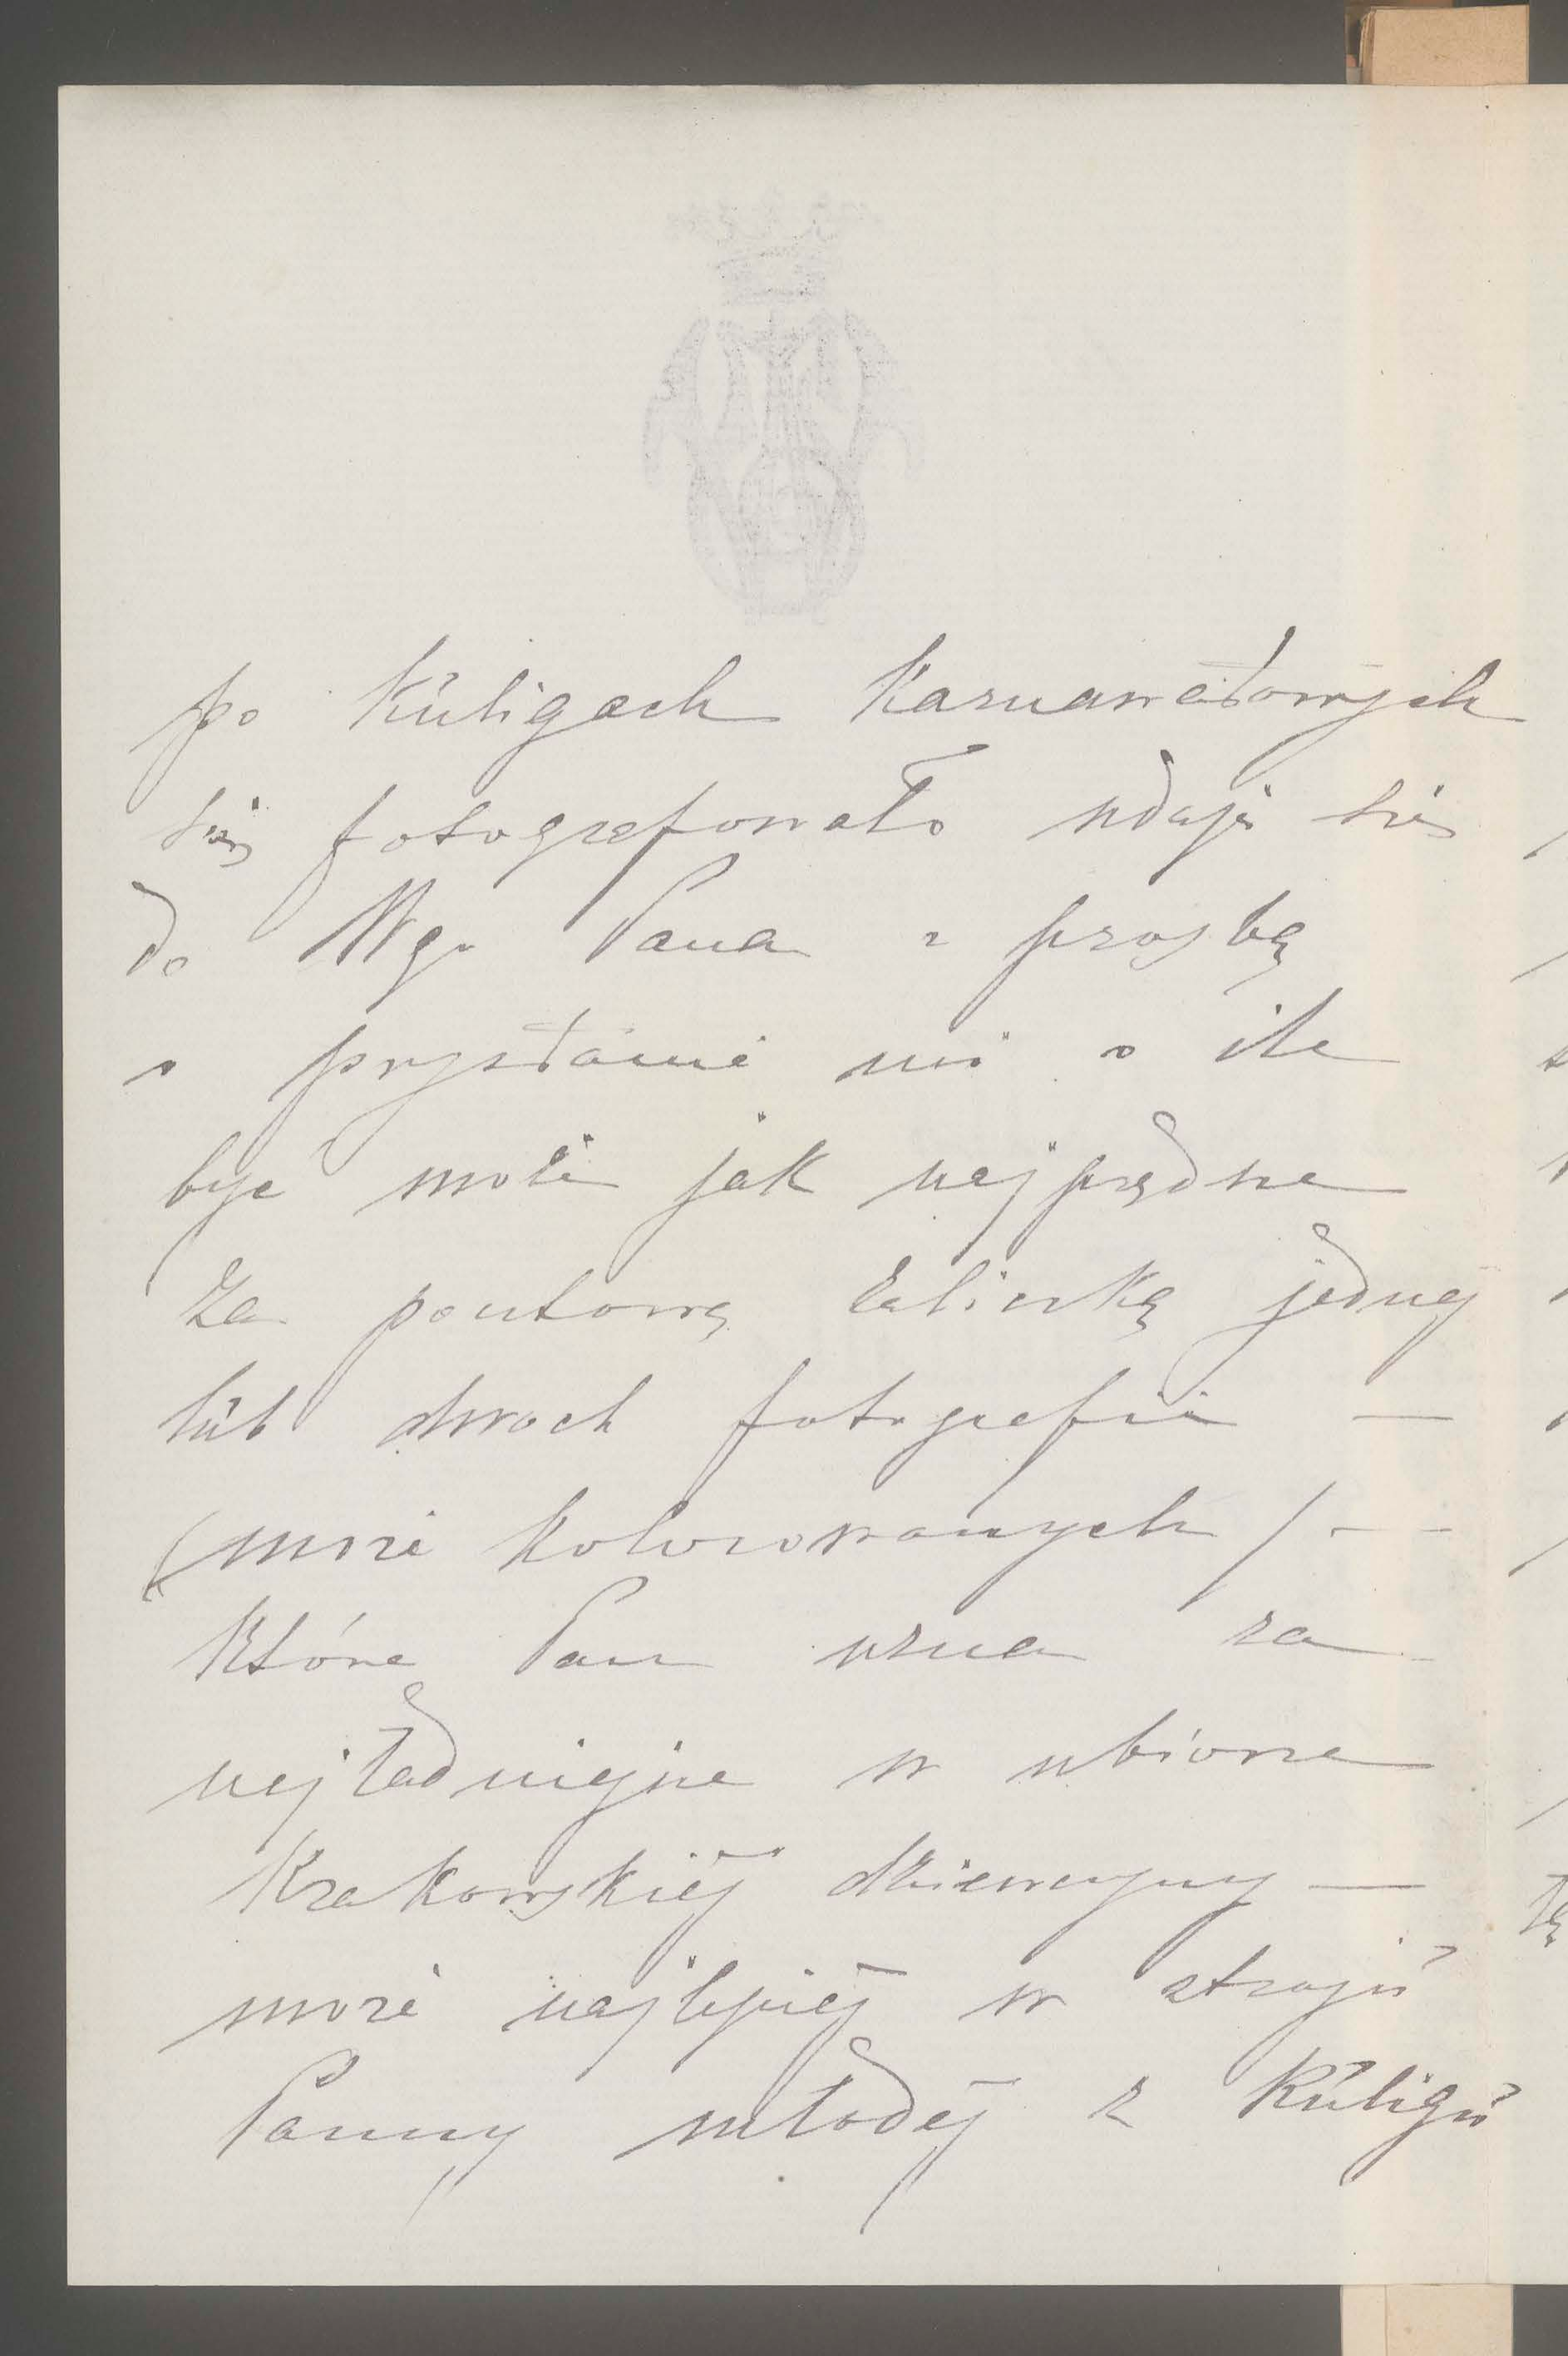 po Kuligach Karnawałowych
się fotografowało udaję się
do Wgo Pana z prośbą
o przysłanie mi o ile
być może jak najprędzej
za pocztową zaliczką jednej
lub dwoch fotografii —
(może kolorowanych) — —
które Pan uzna za
najładniejsze w ubiorze
Krakowskiéj dziewczyny —
może najlepiéj w stroju
Panny młodéj z Kuligu